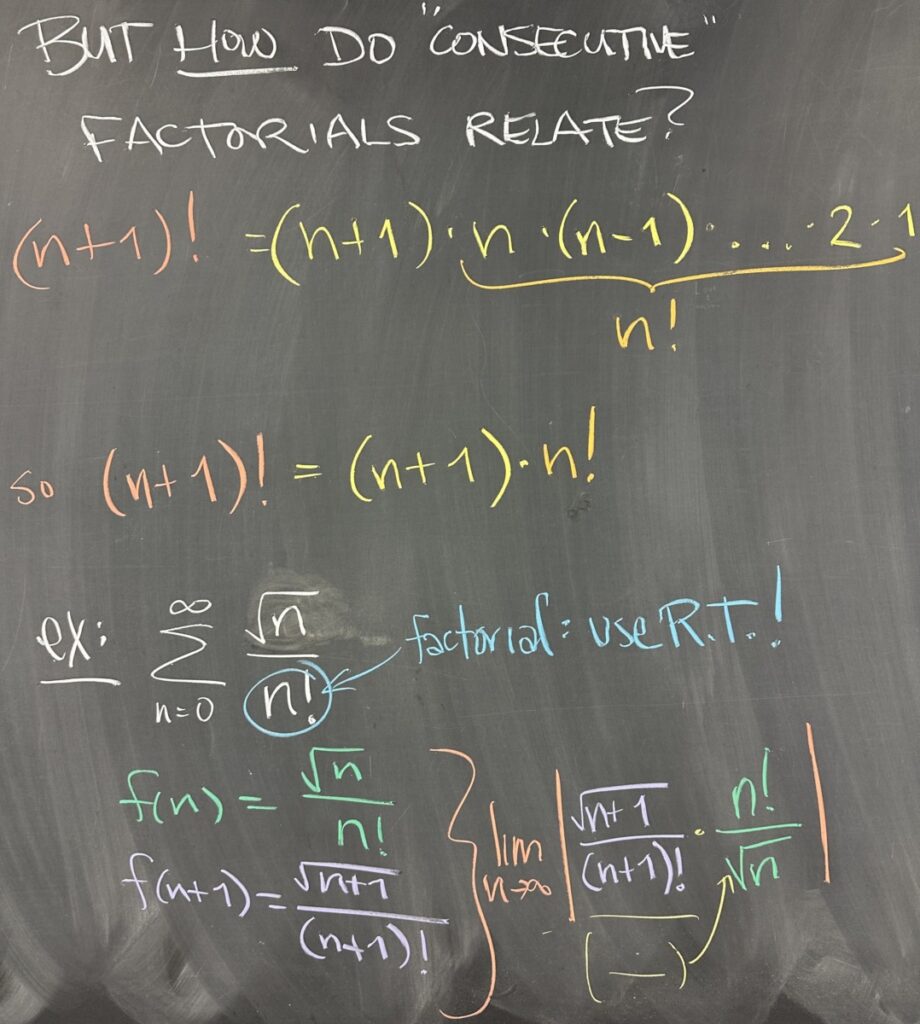 BUT HOW DO "CONSECUTIVE"
FACTORIALS RELATE?
(n+1)! = (n+1)·n·(n-1)·....·2·1
n!
so (n+1)! = (n+1)·n!
ex: ∑_{n=0}^{∞} √n / n! factorial: use R.T.!
f(n) = √n / n!
f(n+1) = √(n+1) / (n+1)!
lim_{n→∞} | √(n+1) / (n+1)! · n! / √n |
(—)